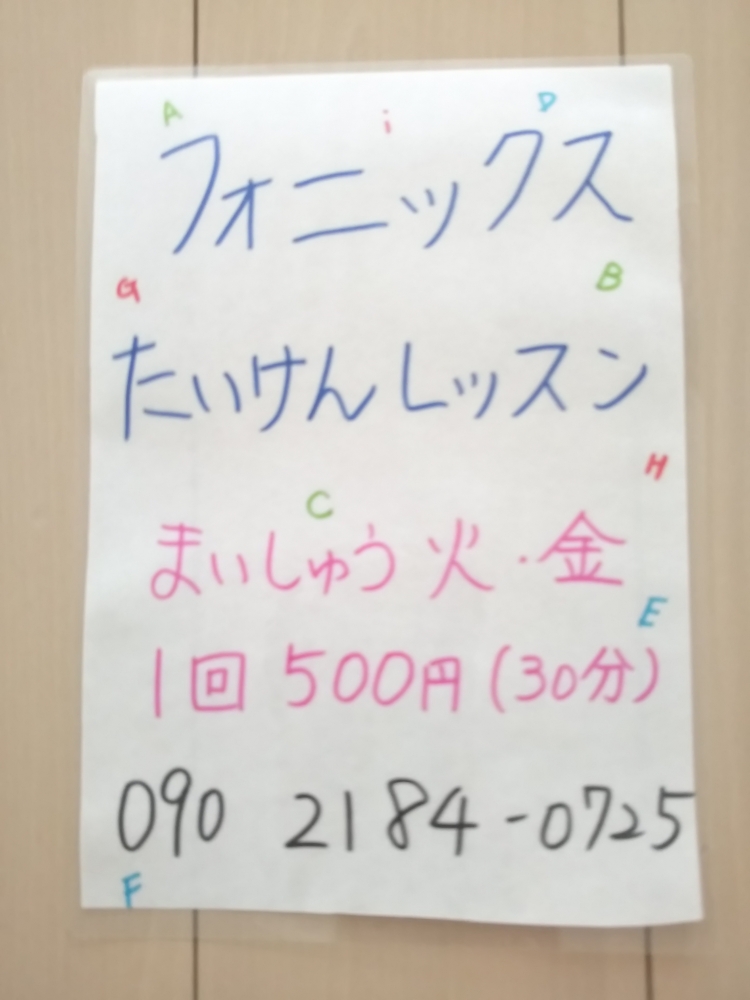 A i D
フォニックス
G B
たいけんレッスン
H
C
まいしゅう 火・金
E
1回 500円(30分)
090 2184-0725
F